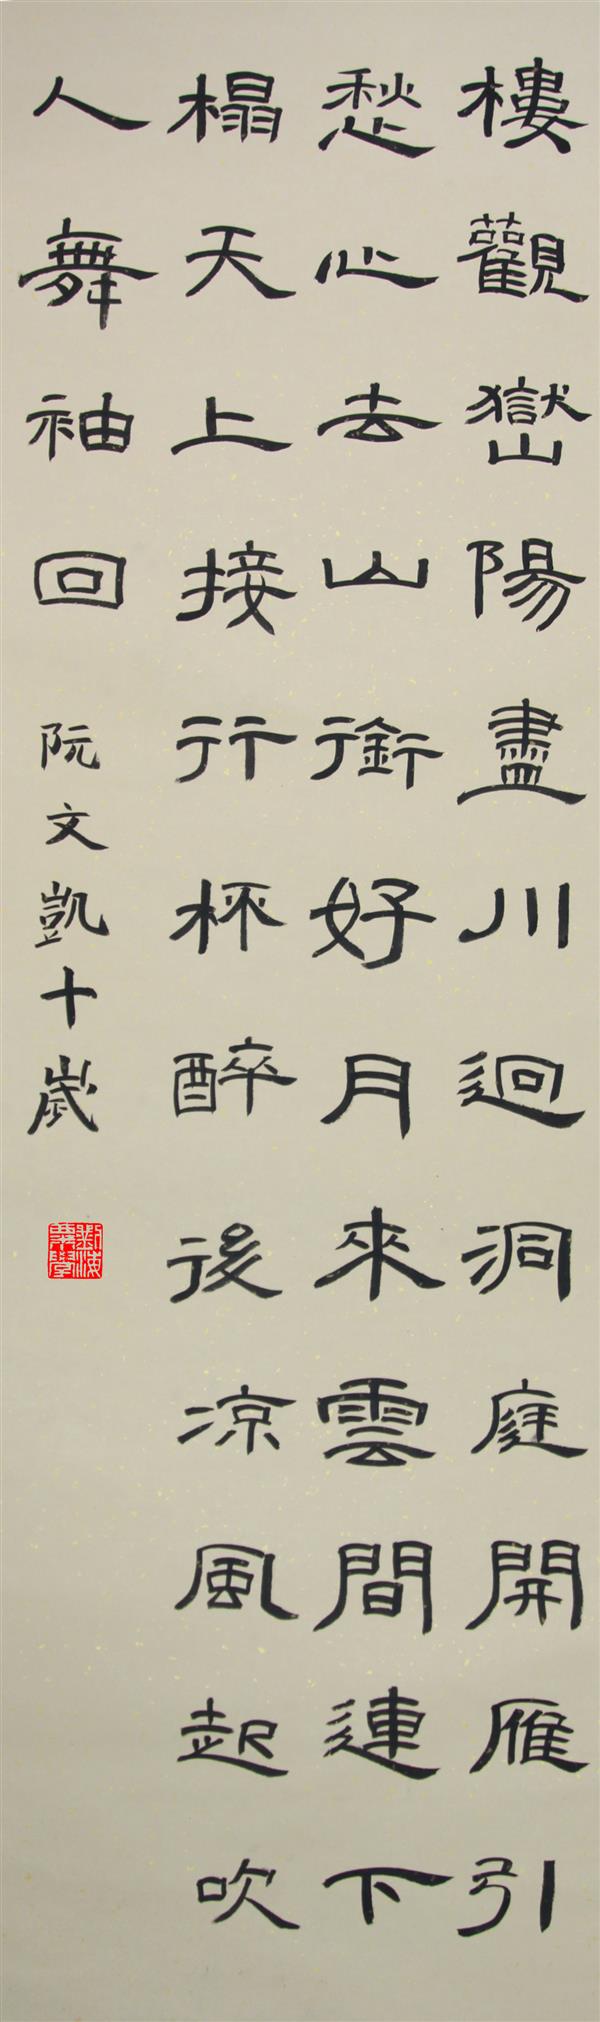 樓觀嶽陽盡川迥洞庭開雁引
愁心去山銜好月來雲間連下
榻天上接行杯醉後涼風起吹
人舞袖回
阮文凱十歲